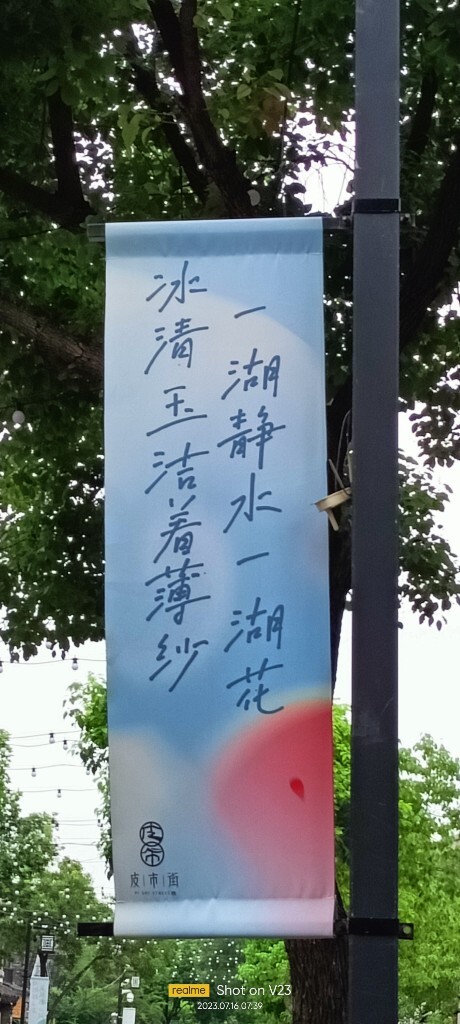 一湖静水一湖花
冰清玉洁着薄纱
皮市街
realme Shot on V23
2023.07.16 07:39